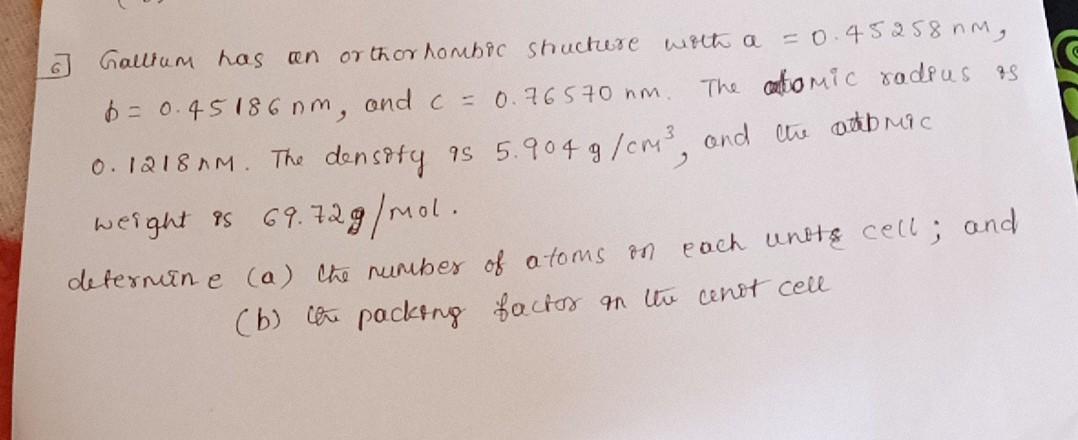 6] Gallium has an orthorhombic structure with a = 0.45258 nm,
b = 0.45186 nm, and c = 0.76570 nm. The atomic radius is
0.1218 nm. The density is 5.904 g/cm³, and the atomic
weight is 69.72g/mol.
determine (a) the number of atoms in each unit cell; and
(b) the packing factor in the unit cell